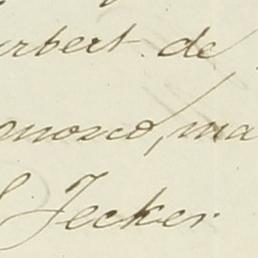 urbert de
onosco, ma
S Jecker